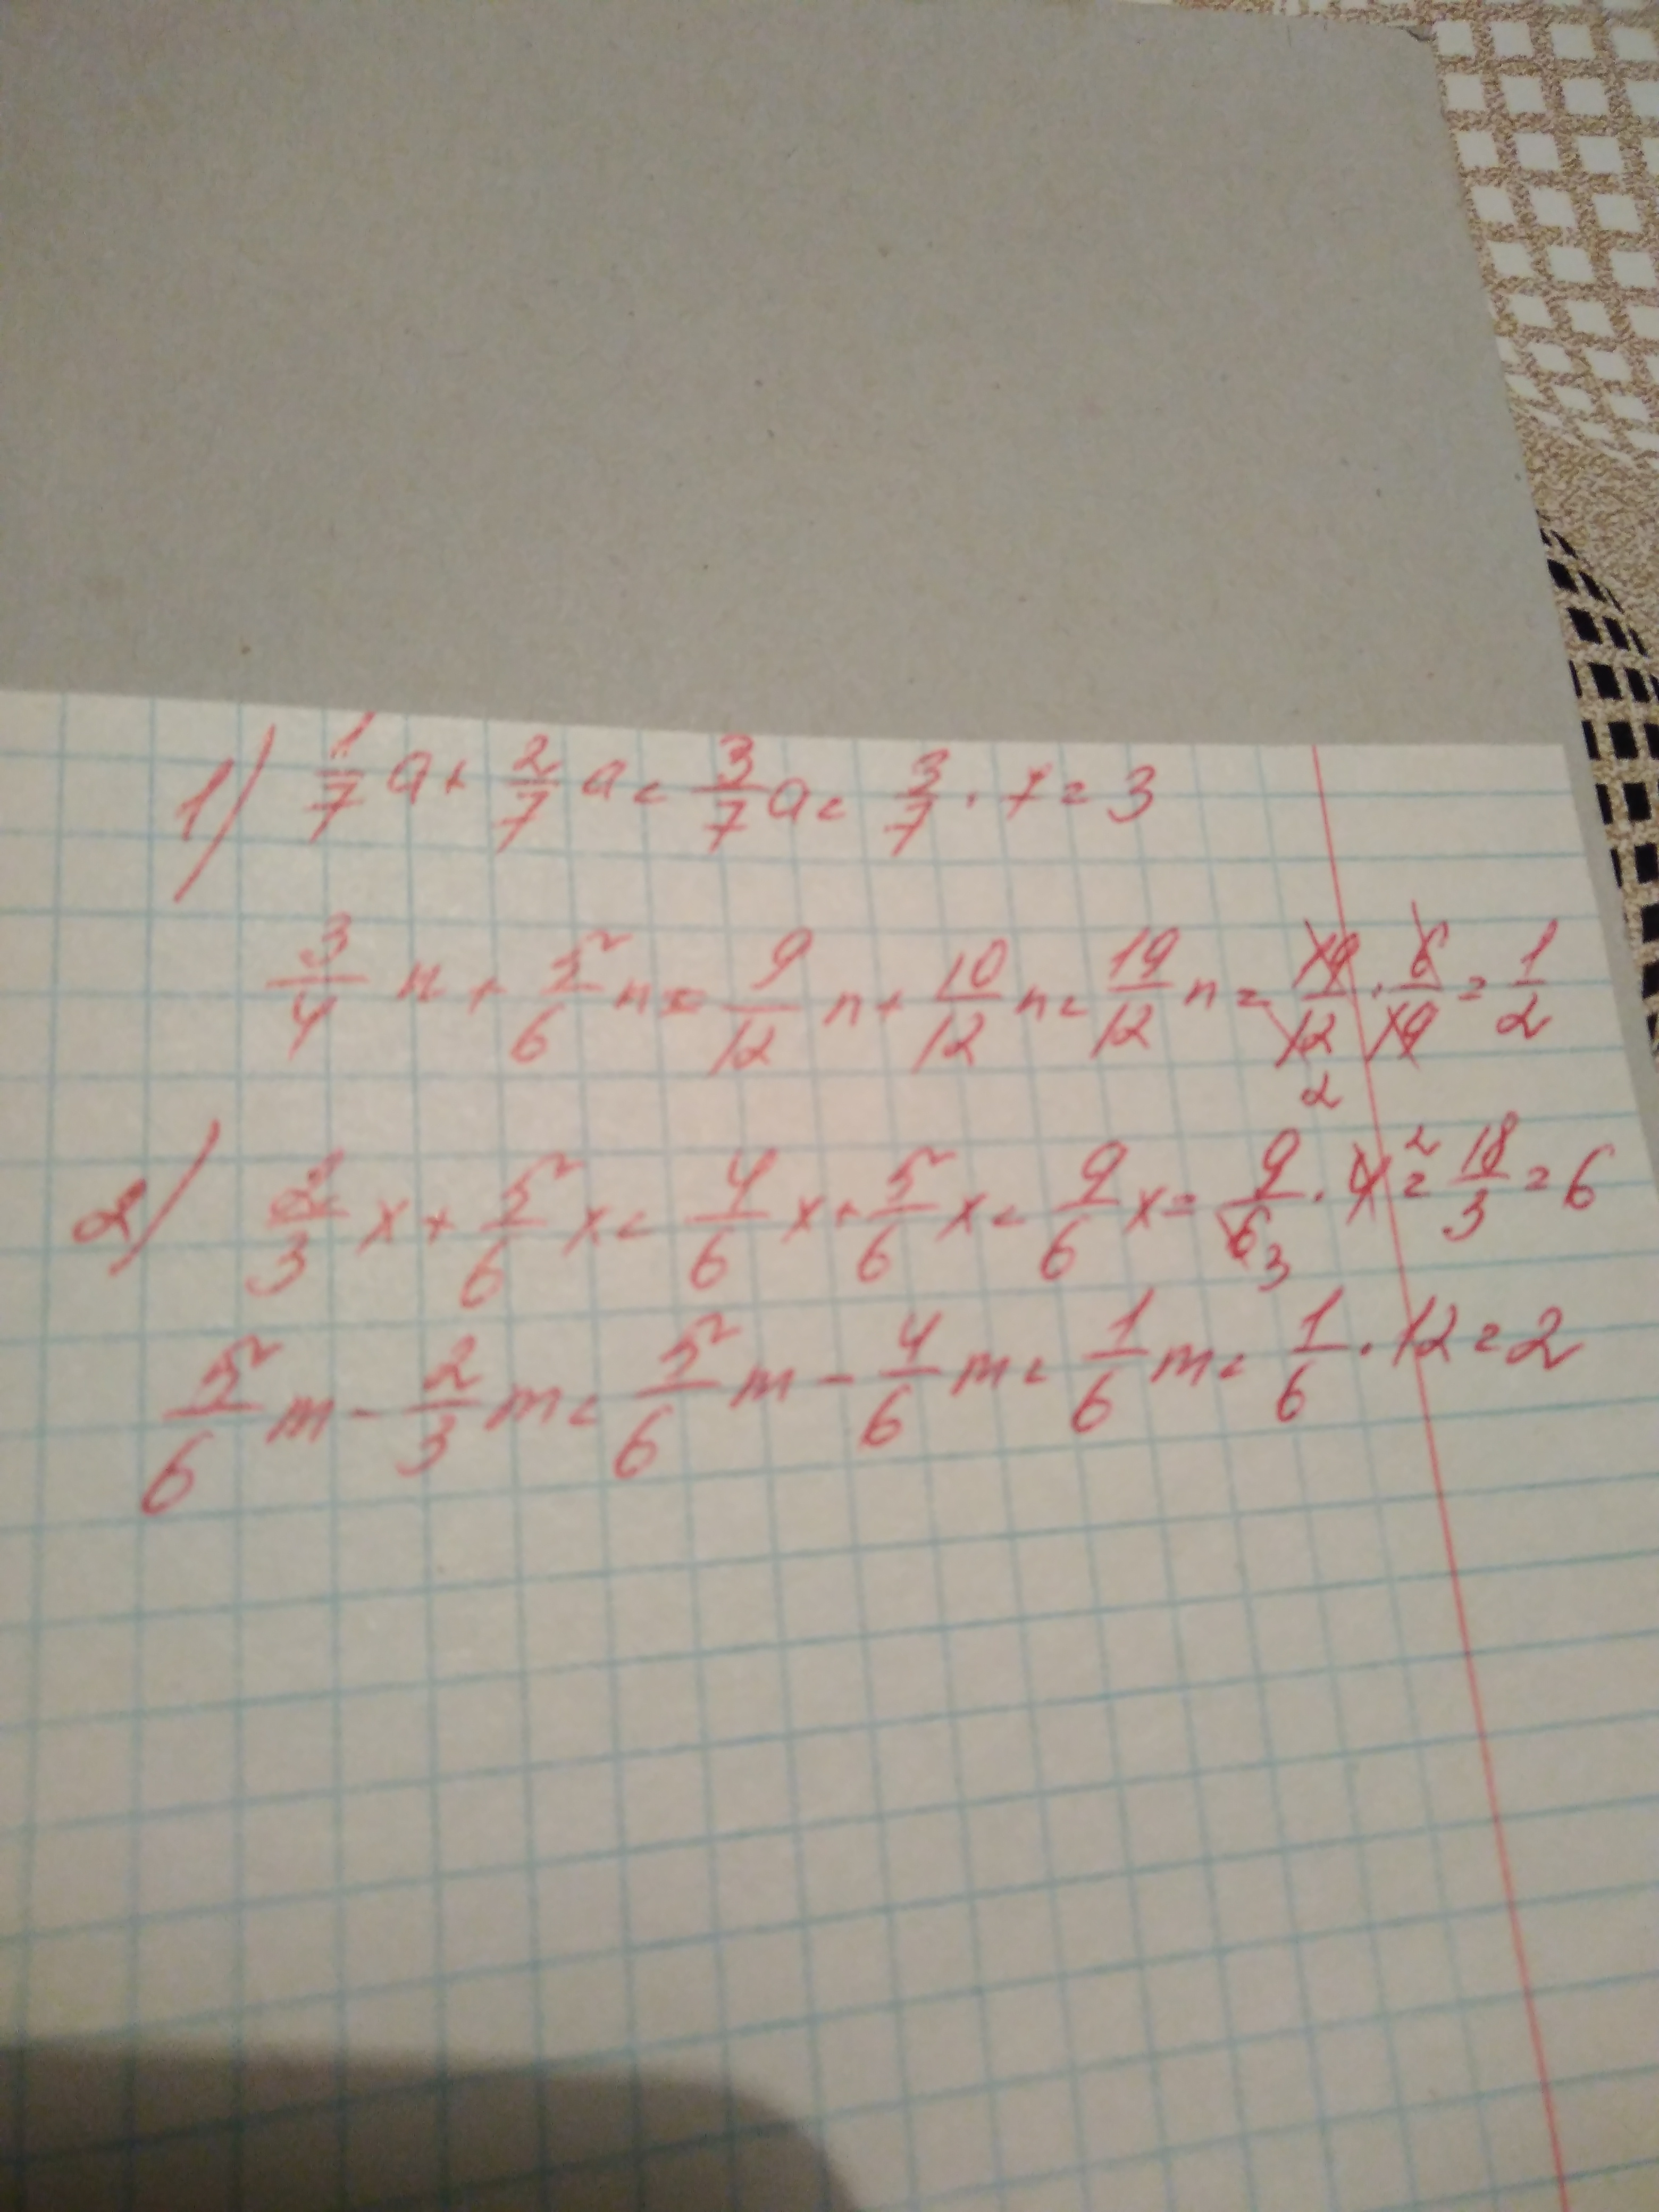 1) 1/7 a + 2/7 a = 3/7 a = 3/7 · 7 = 3
3/4 n + 5/6 n = 9/12 n + 10/12 n = 19/12 n = 19/12 2 · 6/19 = 1/2
2) 2/3 x + 5/6 x = 4/6 x + 5/6 x = 9/6 x = 9/6 3 · 4 2 = 18/3 = 6
5/6 m - 2/3 m = 5/6 m - 4/6 m = 1/6 m = 1/6 · 12 = 2